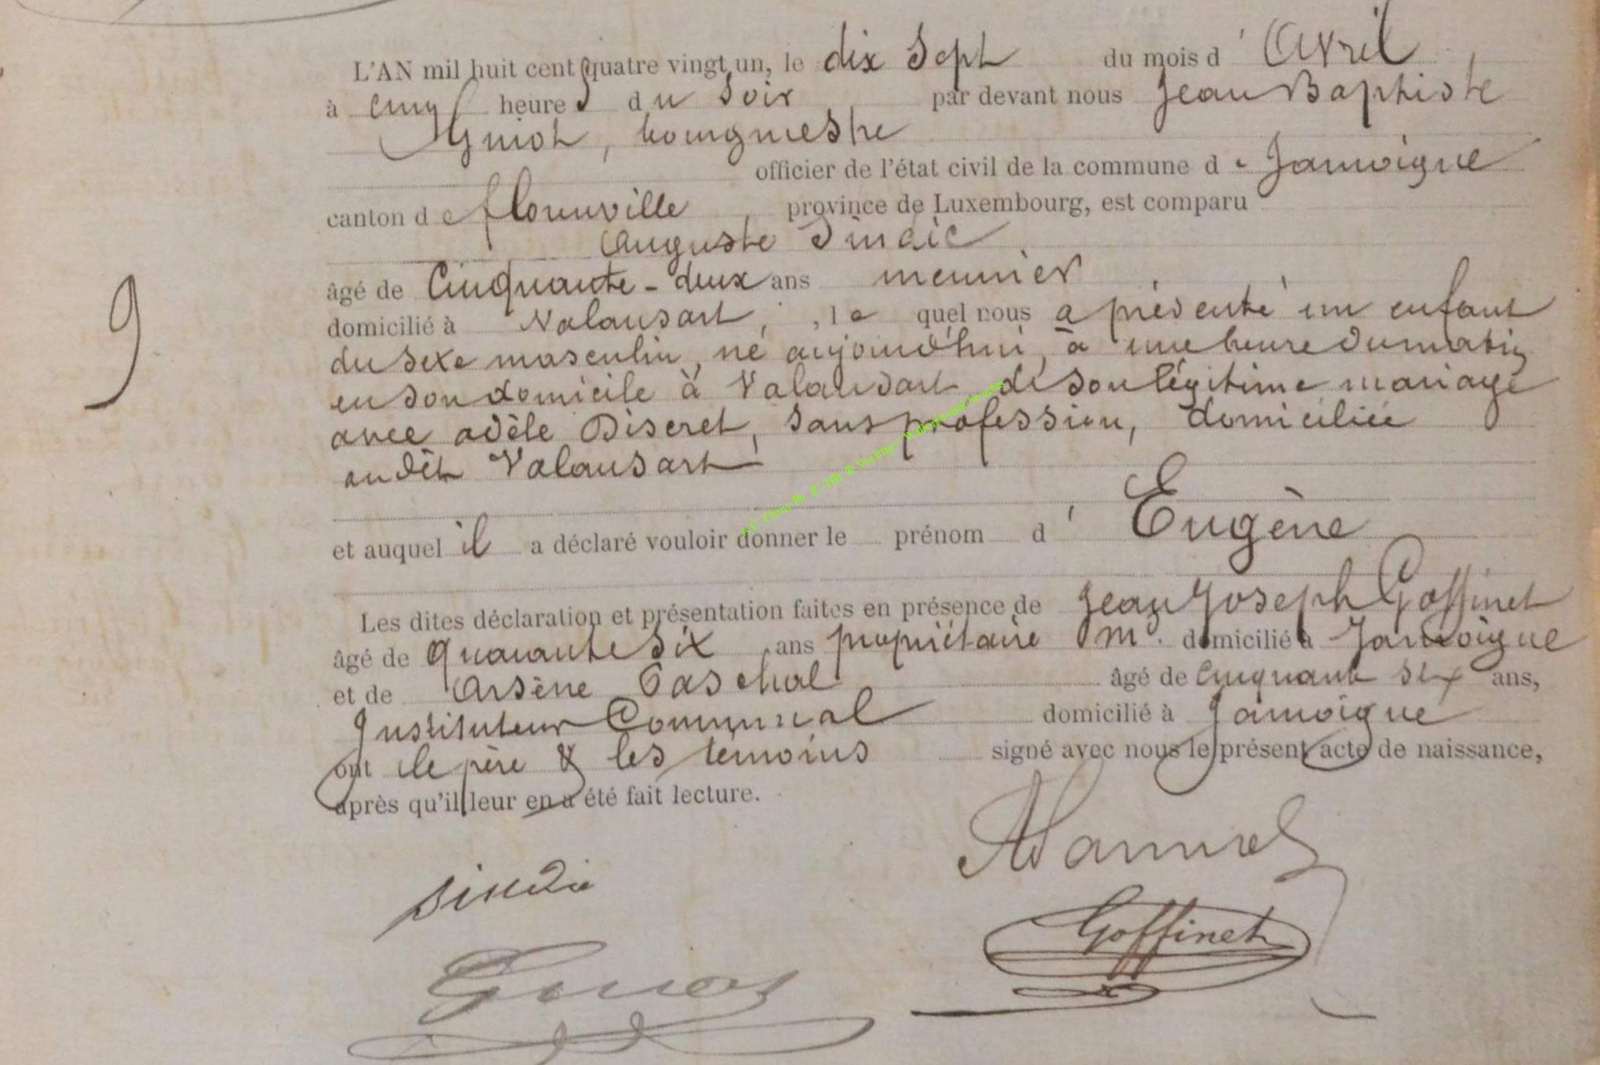 L'AN mil huit cent quatre vingt un, le dix Sept du mois d' Avril
à cinq heures du Soir par devant nous Jean Baptiste
Guiot, bourgmestre
officier de l'état civil de la commune de Jamoigne
canton de florenville, province de Luxembourg, est comparu
Auguste Sindic
âgé de Cinquante-deux ans meunier
domicilié à Valansart, , le quel nous a présenté un enfant
du sexe masculin, né aujourd'hui, à une heure du matin
en son domicile à Valansart de son légitime mariage
avec adèle Discret, sans profession, domiciliée
au dit Valansart
et auquel il a déclaré vouloir donner le prénom d' Eugène
Les dites déclaration et présentation faites en présence de Jean Joseph Goffinet
âgé de quarante six ans propriétaire domicilié à Jamoigne
et de Arsène âgé de cinquante six ans,
Instituteur Communal domicilié à Jamoigne
ont le père & les témoins signé avec nous le présent acte de naissance,
après qu'il leur en a été fait lecture.
9
Sindic
Goffinet
Guiot